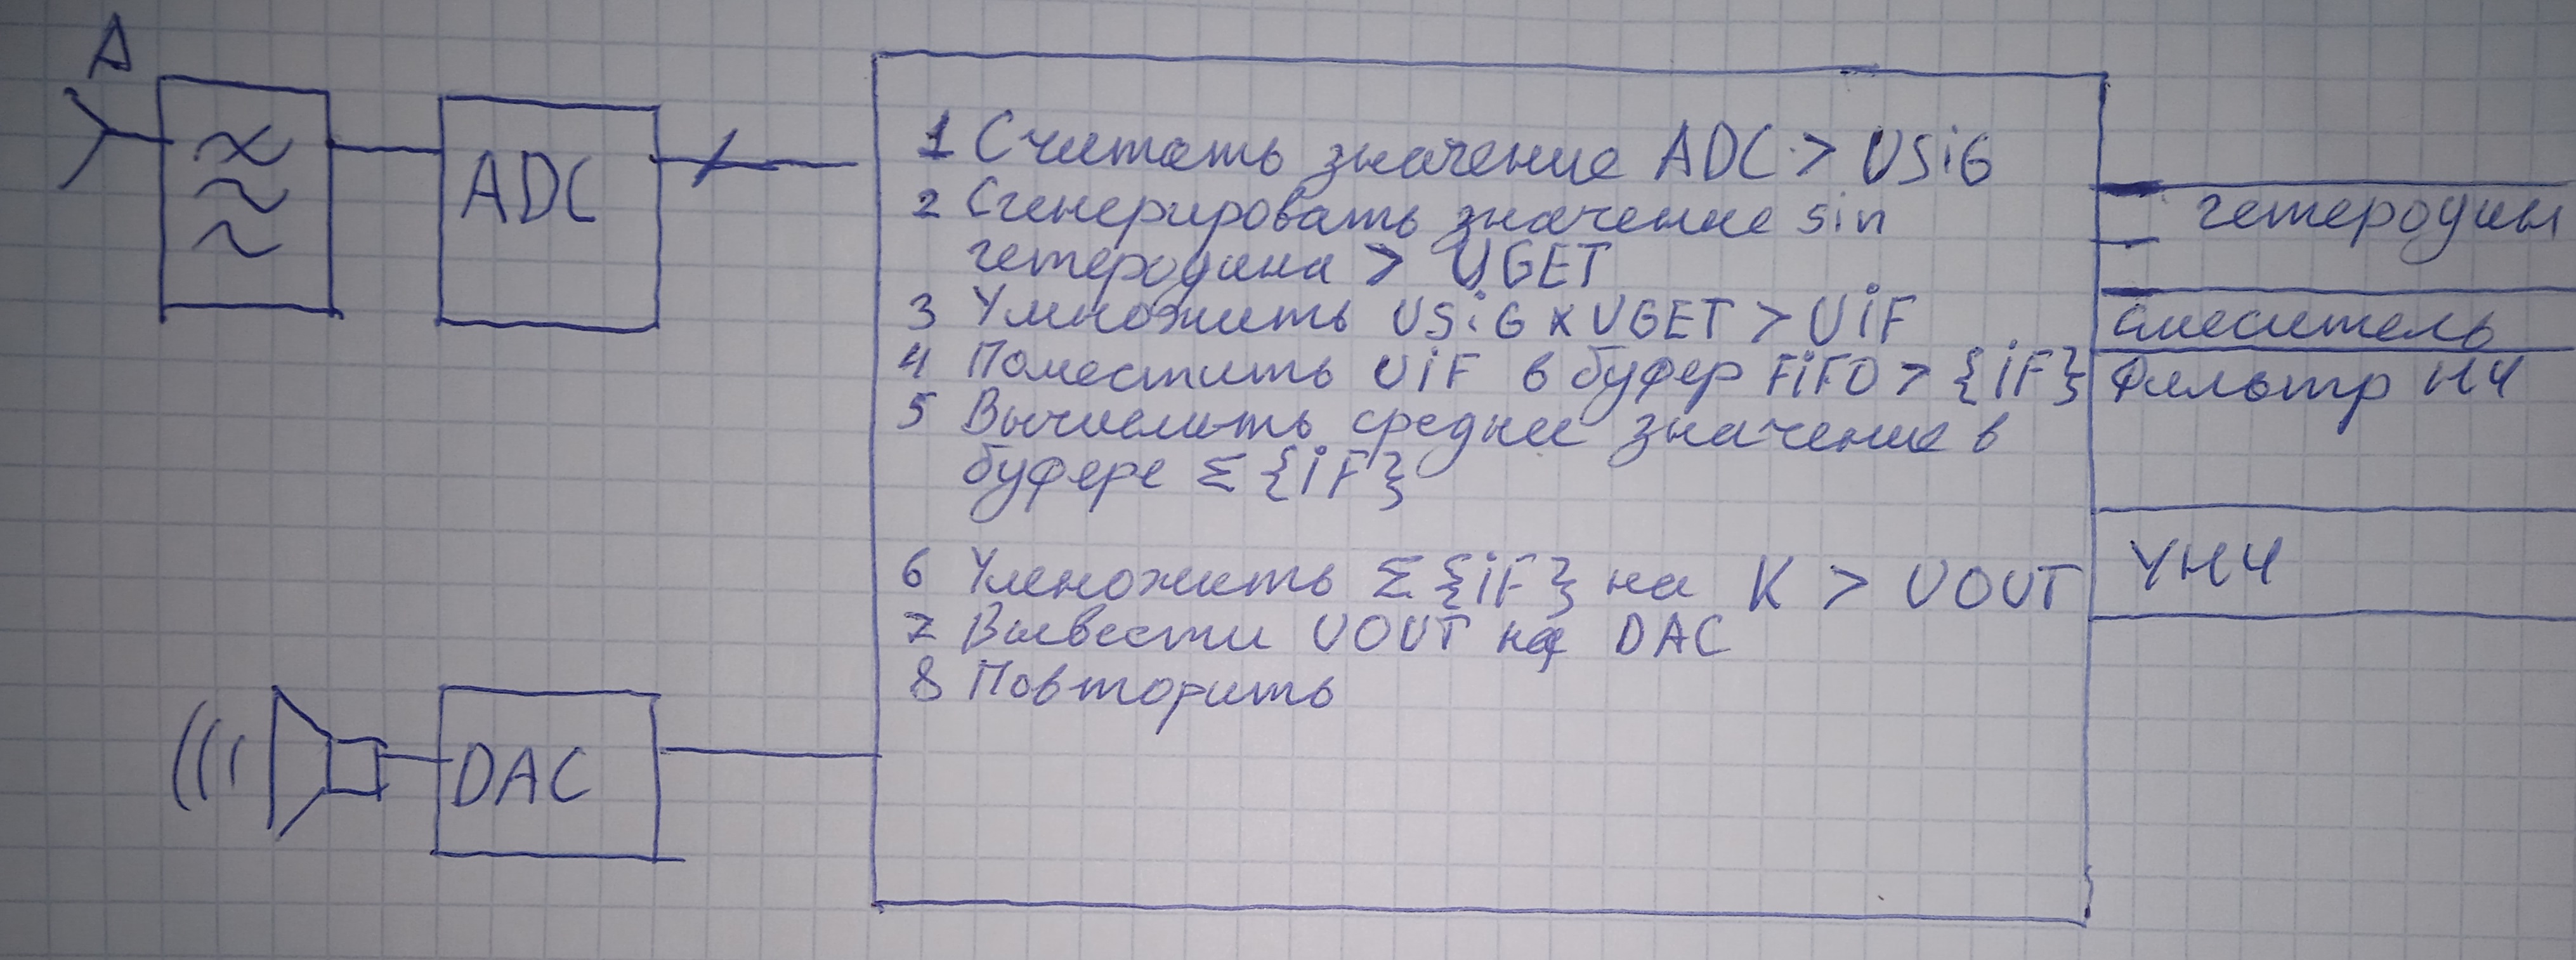 A
ADC
1 Считать значение ADC > USiG
2 Сгенерировать значение sin
гетеродина > UGET
3 Умножить USiG x UGET > UiF
4 Поместить UiF в буфер FiFO > {iF}
5 Вычислить среднее значение в
буфере Σ {iF}
6 Умножить Σ {iF} на K > UOUT
7 Вывести UOUT на DAC
8 Повторить
гетеродин
смеситель
Фильтр НЧ
УНЧ
DAC